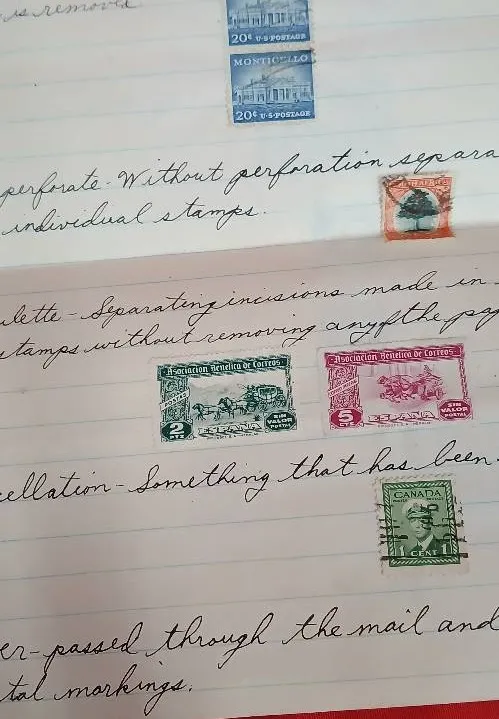 is removed
20¢ U.S. POSTAGE
MONTICELLO
20¢ U.S. POSTAGE
perforate - Without perforation separa
individual stamps.
ulette - Separating incisions made in
stamps without removing any of the pap
Asociacion Benefica de Correos
2
PTS
ESPAÑA
SIN
VALOR
POSTAL
Asociacion Benefica de Correos
5
PTS
ESPAÑA
SIN
VALOR
POSTAL
cellation - Something that has been
CANADA
1 CENT 1
er - passed through the mail and
tal markings.